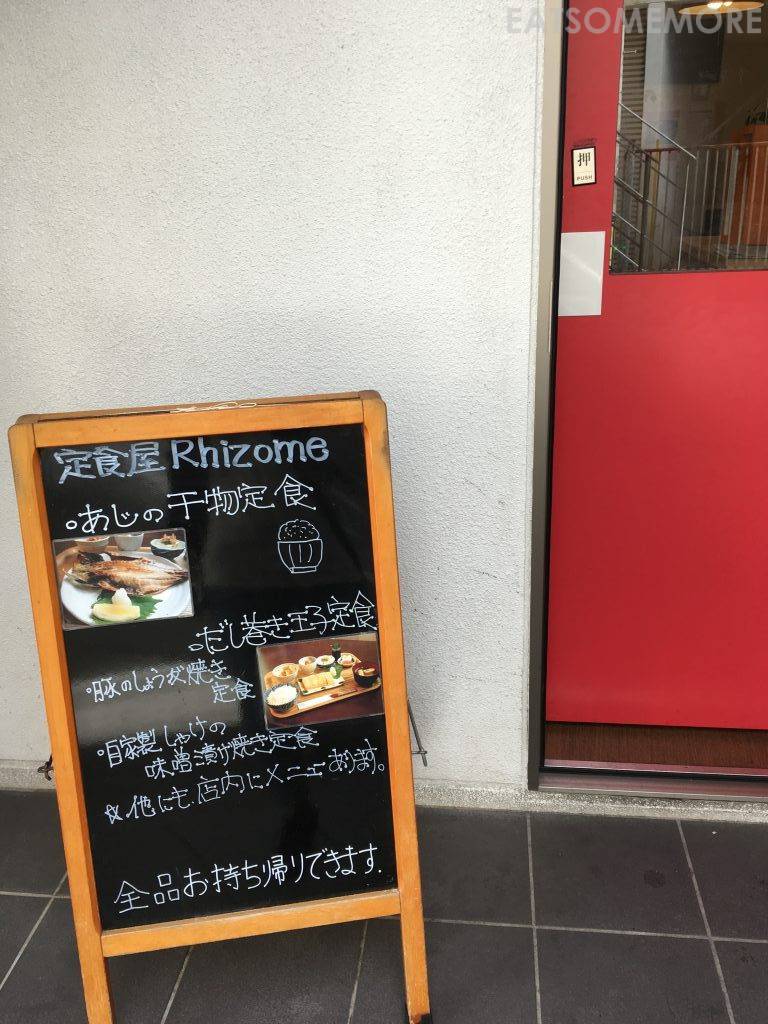 EATSOMEMORE
押
PUSH
定食屋 Rhizome
。あじの干物定食
。だし巻き玉子定食
。豚のしょうが焼き
定食
。自家製しゃけの
味噌漬け焼き定食
☆他にも店内にメニューあります。
全品お持ち帰りできます.